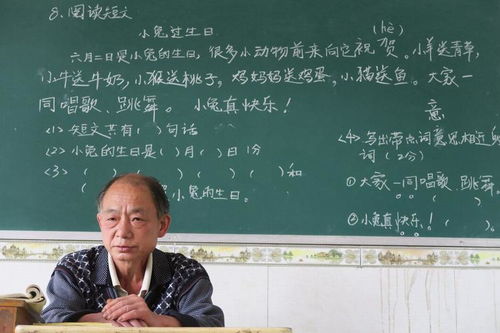 8、阅读短文
小兔过生日
(hè)
六月二日是小兔的生日，很多小动物前来向它祝贺。小羊送青草，
小牛送牛奶，小猴送桃子，鸡妈妈送鸡蛋，小猫送鱼。大家一
同唱歌、跳舞。 小兔真快乐！
<1> 短文共有( )句话
<2> 小兔的生日是( )月( )日 1分
<3> ( ) ( ) ( ) ( ) ( )和
小兔的生日。
意
<4> 写出带点词意思相近的
词 (2分)
① 大家一同唱歌、跳舞。
( )
② 小兔真快乐！( )